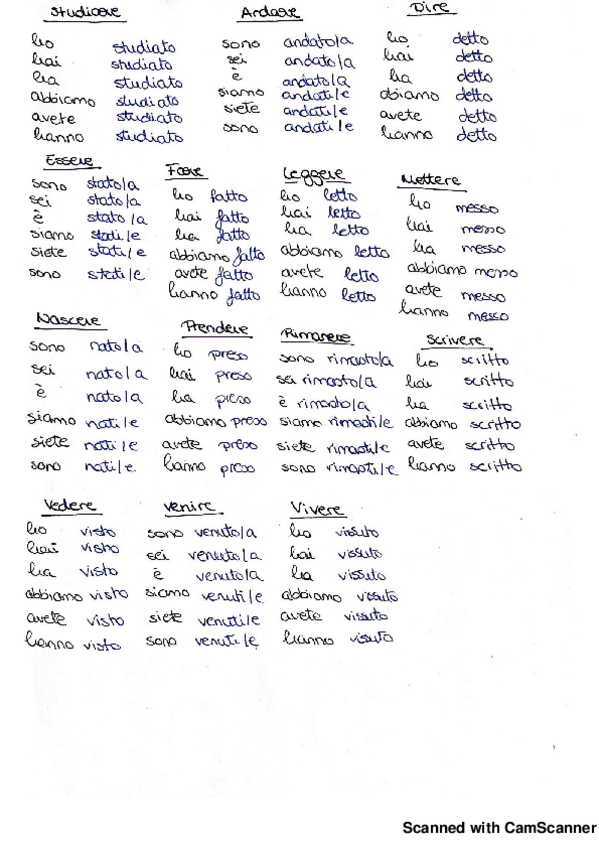 Studiare Andare Dire
ho studiato sono andato/a ho detto
hai studiato sei andato/a hai detto
ha studiato è andato/a ha detto
abbiamo studiato siamo andati/e abiamo detto
avete studiato siete andati/e avete detto
hanno studiato sono andati/e hanno detto
Essere Fare Leggere Mettere
sono stato/a ho fatto ho letto ho messo
sei stato/a hai fatto hai letto hai messo
è stato/a ha fatto ha letto ha messo
siamo stati/e abbiamo fatto abbiamo letto abbiamo messo
siete stati/e avete fatto avete letto avete messo
sono stati/e hanno fatto hanno letto hanno messo
Nascere Prendere Rimanere Scrivere
sono nato/a ho preso sono rimasto/a ho scritto
sei nato/a hai preso sei rimasto/a hai scritto
è nato/a ha preso è rimasto/a ha scritto
siamo nati/e abbiamo preso siamo rimasti/e abbiamo scritto
siete nati/e avete preso siete rimasti/e avete scritto
sono nati/e hanno preso sono rimasti/e hanno scritto
Vedere Venire Vivere
ho visto sono venuto/a ho vissuto
hai visto sei venuto/a hai vissuto
ha visto è venuto/a ha vissuto
abbiamo visto siamo venuti/e abbiamo vissuto
avete visto siete venuti/e avete vissuto
hanno visto sono venuti/e hanno vissuto
Scanned with CamScanner